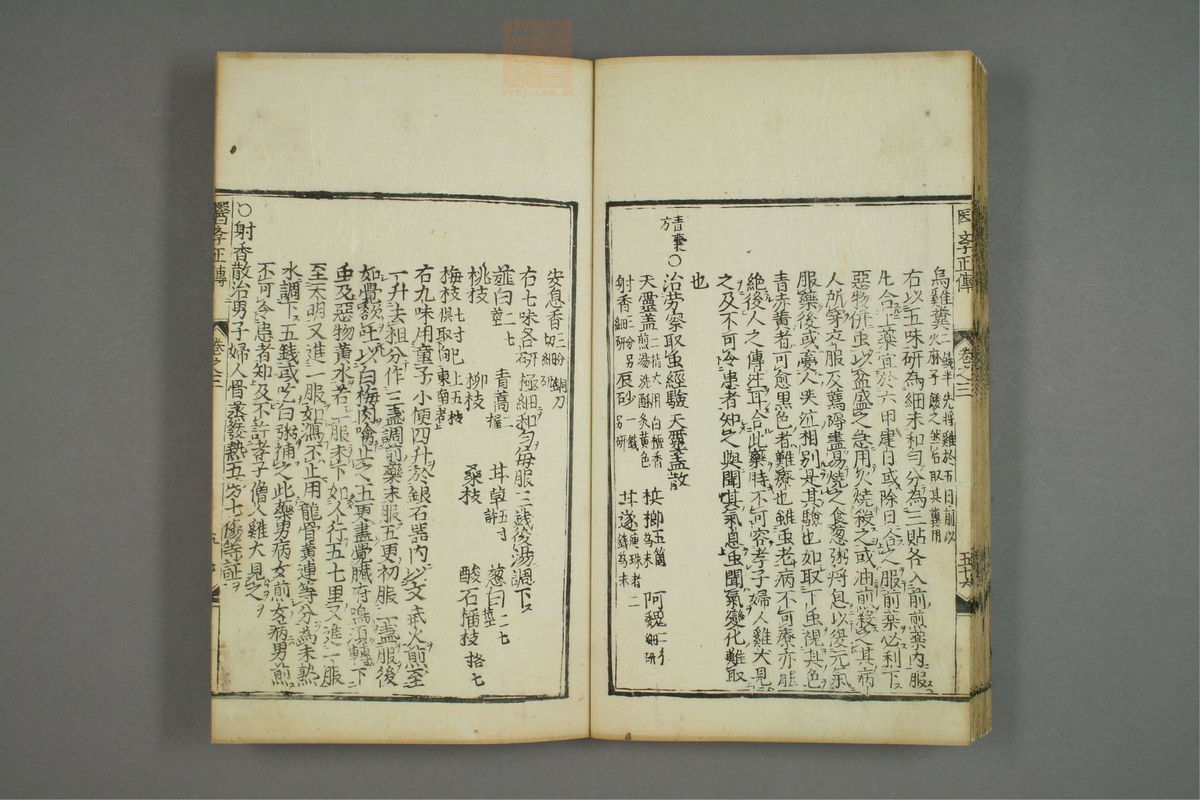 醫學正傳 卷之三 五十九
烏雞糞二錢半先將雞於五日前以火麻子餧之然后取其糞用
右以五味研為細末和勻分為三貼各入前煎藥內服
凡合此藥宜於六甲建日或除日合之服前藥必利下
惡物併虫以盆盛之急用火燒殺之或油煎殺之其病
人所穿衣服及薦褥盡易燒之食葱粥將息以復元氣
服藥後或夢人哭泣相別是其驗也如取下虫視其色
青赤黃者可愈黑色者難療也雖虫老病不可療亦能
絕後人之傳注耳合此藥時不可容孝子婦人雞犬見
之及不可令患者知之與聞其氣息虫聞氣變化難取
也
青囊方○治勞瘵取虫經驗天靈蓋散
天靈盖二指大用白檀香煎湯洗酥灸黃色 梹榔五箇為末 阿魏二分細研
射香三分另細研 辰砂一錢另研 甘遂二錢為末
安息香三分銅刀切細研
右七味各研極細和勻每服三錢後湯調下
薤白二七莖 青蒿二握 甘草五寸許 葱白二七莖
桃枝 柳枝 桑枝 酸石榴枝
梅枝俱取向東南者上五枝各七寸七
右九味用童子小便四升於銀石器內以文武火煎至
一升去粗分作三盞調前藥末服五更初服一盞服後
如覺欲吐以白梅肉噙止之五更盡覺臟府鳴須轉下
虫及惡物黃水若一服未下如人行五七里又進一服
至天明又進一服如瀉不止用龍骨黃連等分為末熟
水調下五錢或吃白粥補之此藥男病女煎女病男煎
不可令患者知及不許孝子僧人雞犬見之
○射香散治男子婦人骨蒸發熱五勞七傷等証
醫學正傳 卷之三